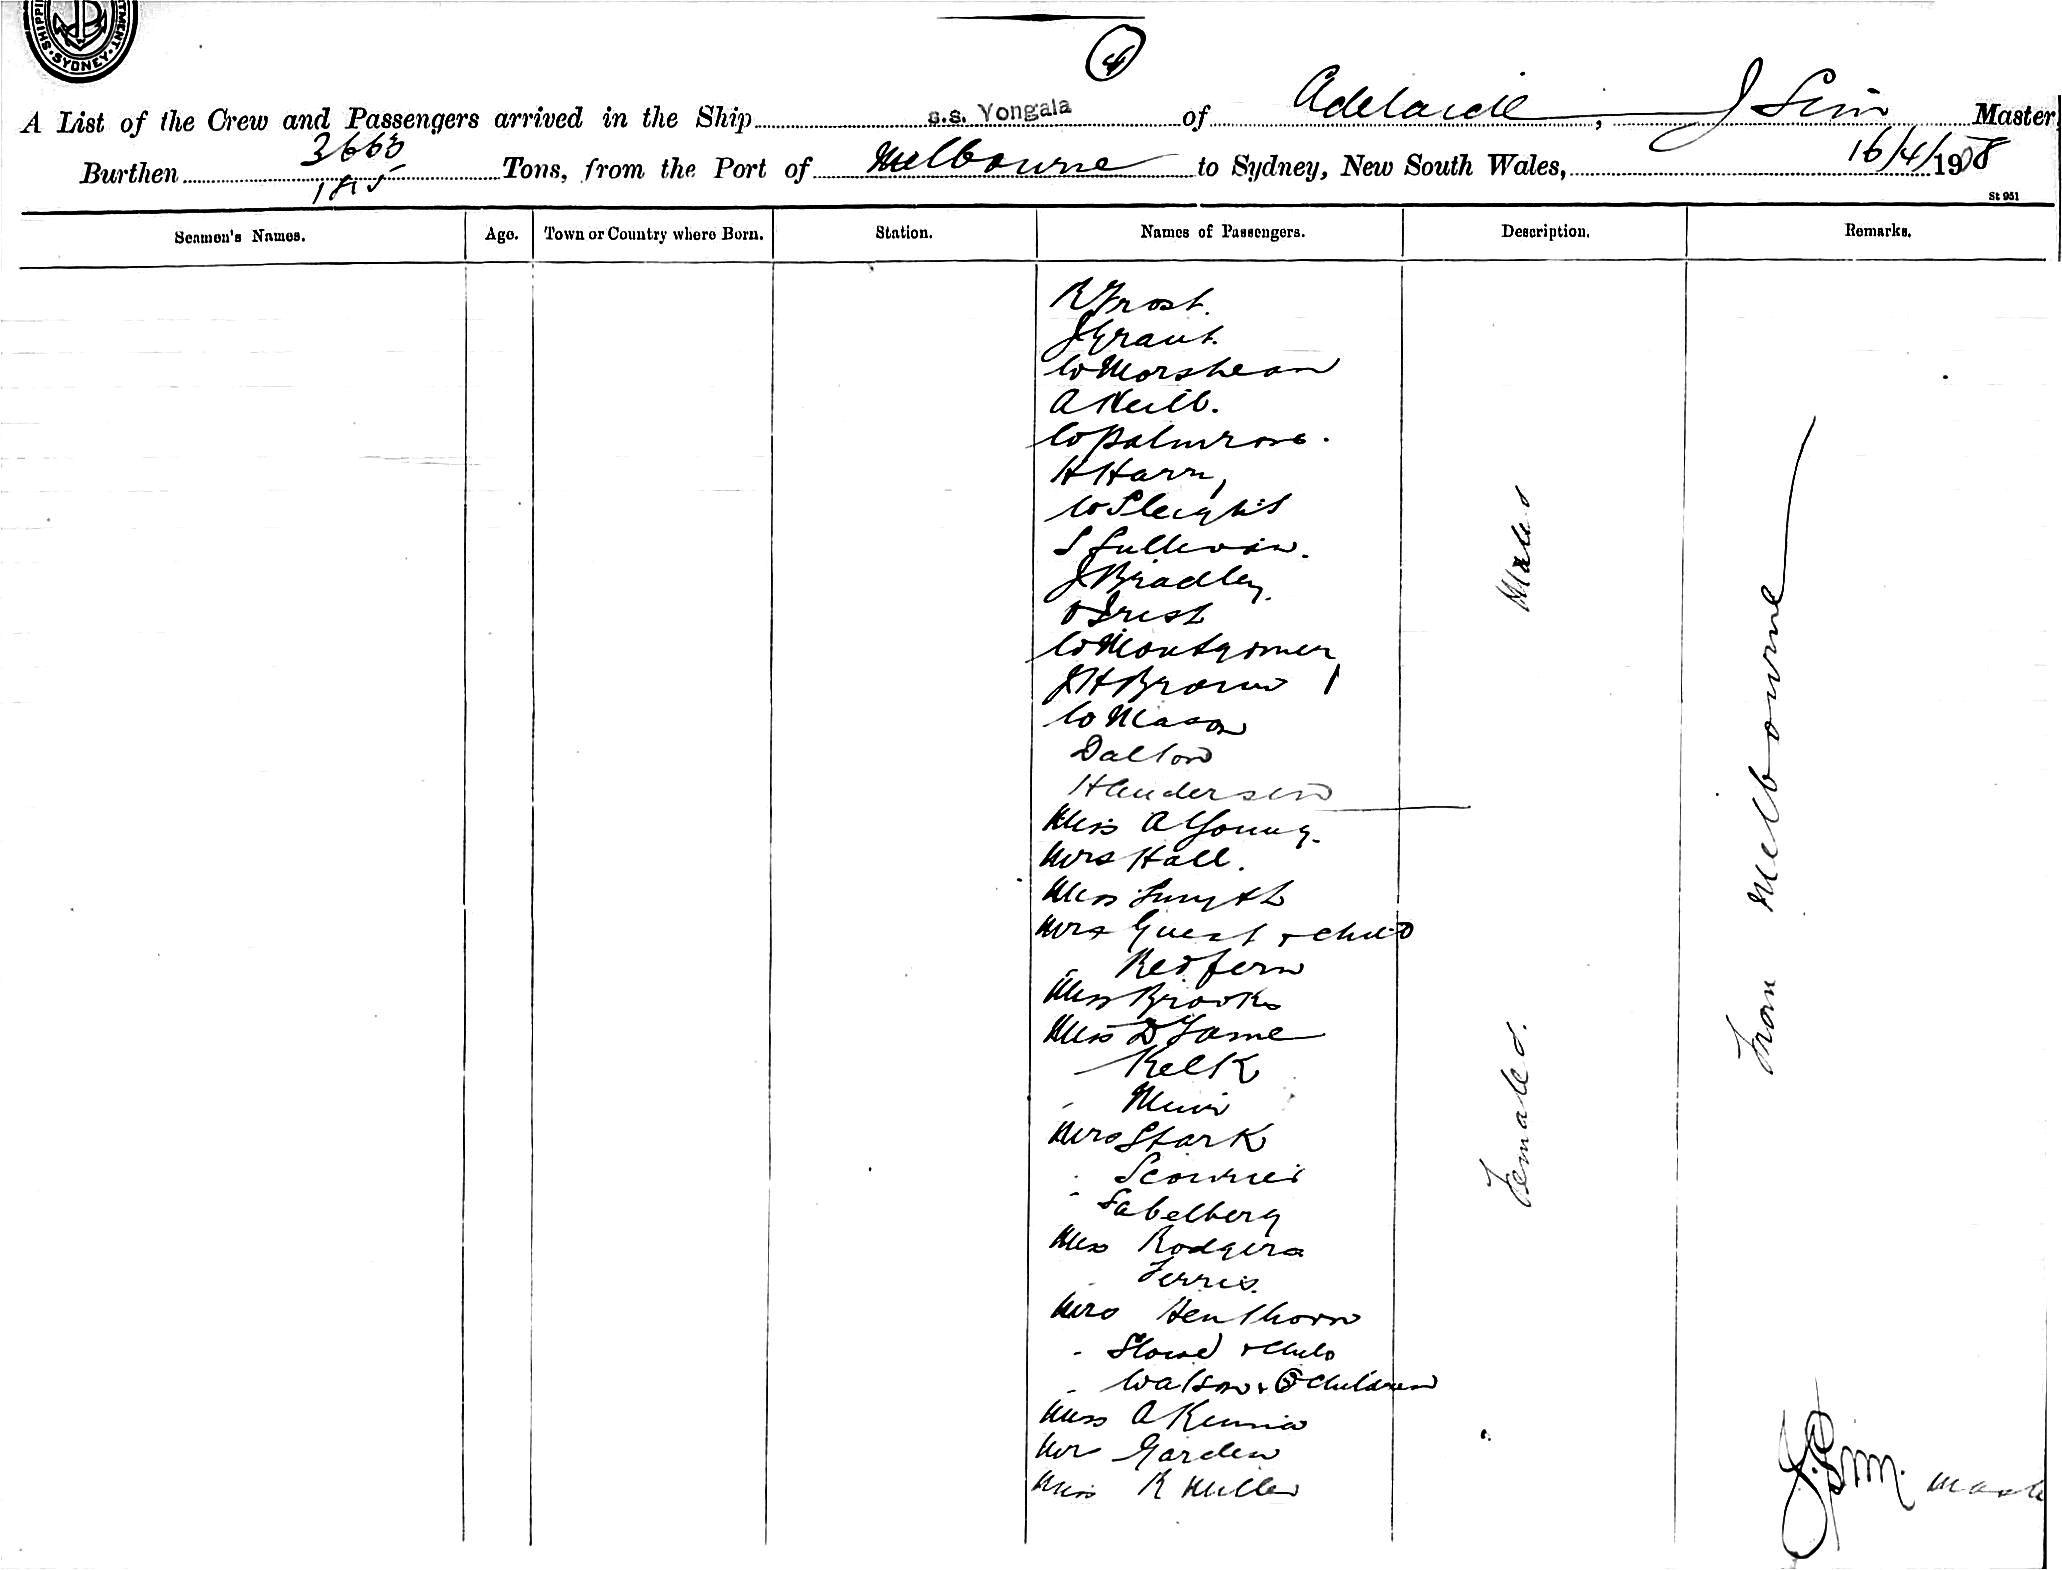 SHIPPING DEPARTMENT. SYDNEY.
4
A List of the Crew and Passengers arrived in the Ship s.s. Yongala of Adelaide, J Sim Master
Burthen 3663 Tons, from the Port of Melbourne to Sydney, New South Wales, 16/4/1908
185
St 951
Seamen's Names. Age. Town or Country where Born. Station. Names of Passengers. Description. Remarks.
R Frost.
J Grant.
W Morshead
A Neill.
W Palmrose.
H Harry
W Sleight
S Sullivan.
J Bradley.
O Irish
W Montgomery
J H Brown
W Mason
Dalton
Henderson
Males
Miss A Young.
Mrs Hall.
Miss Smyth
Mrs Guest + child
" Redfern
Miss Brooks
Miss D Fame
Kelk
" Muir
Mrs Stark
"
" Sabelberg
Miss Rodgers
" Ferris.
Mrs Henthorn
" + Child
" Watson + 3 Children
Miss A Kenna
Mr Garden
Miss R Miller
Females.
From Melbourne
J. Sim. Master